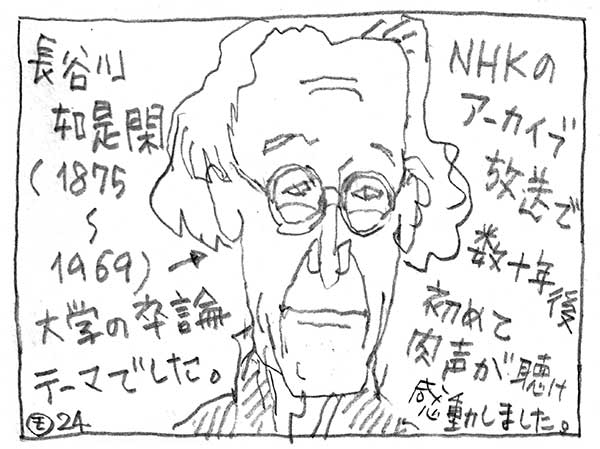 長谷川
如是閑
(1875
〜
1969)→
大学の卒論
テーマでした。
NHKの
アーカイブ
放送で
数十年後
初めて
肉声が聴け
感動しました。
24